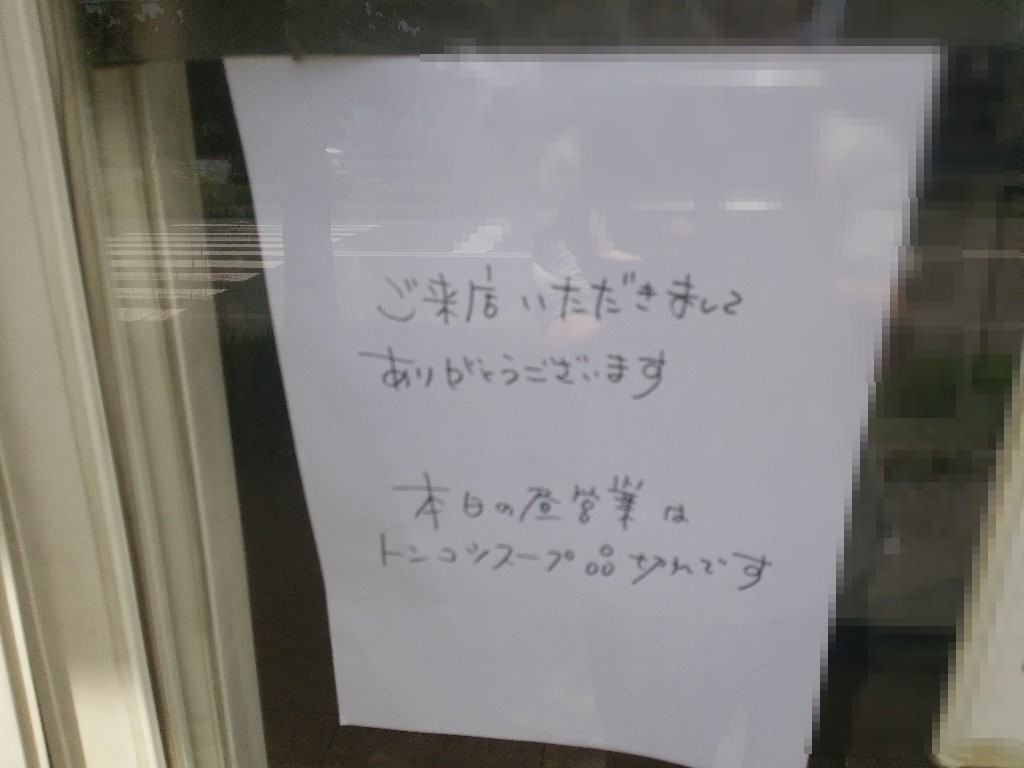 ご来店いただきまして
ありがとうございます
本日の昼営業は
トンコツスープ品切れです